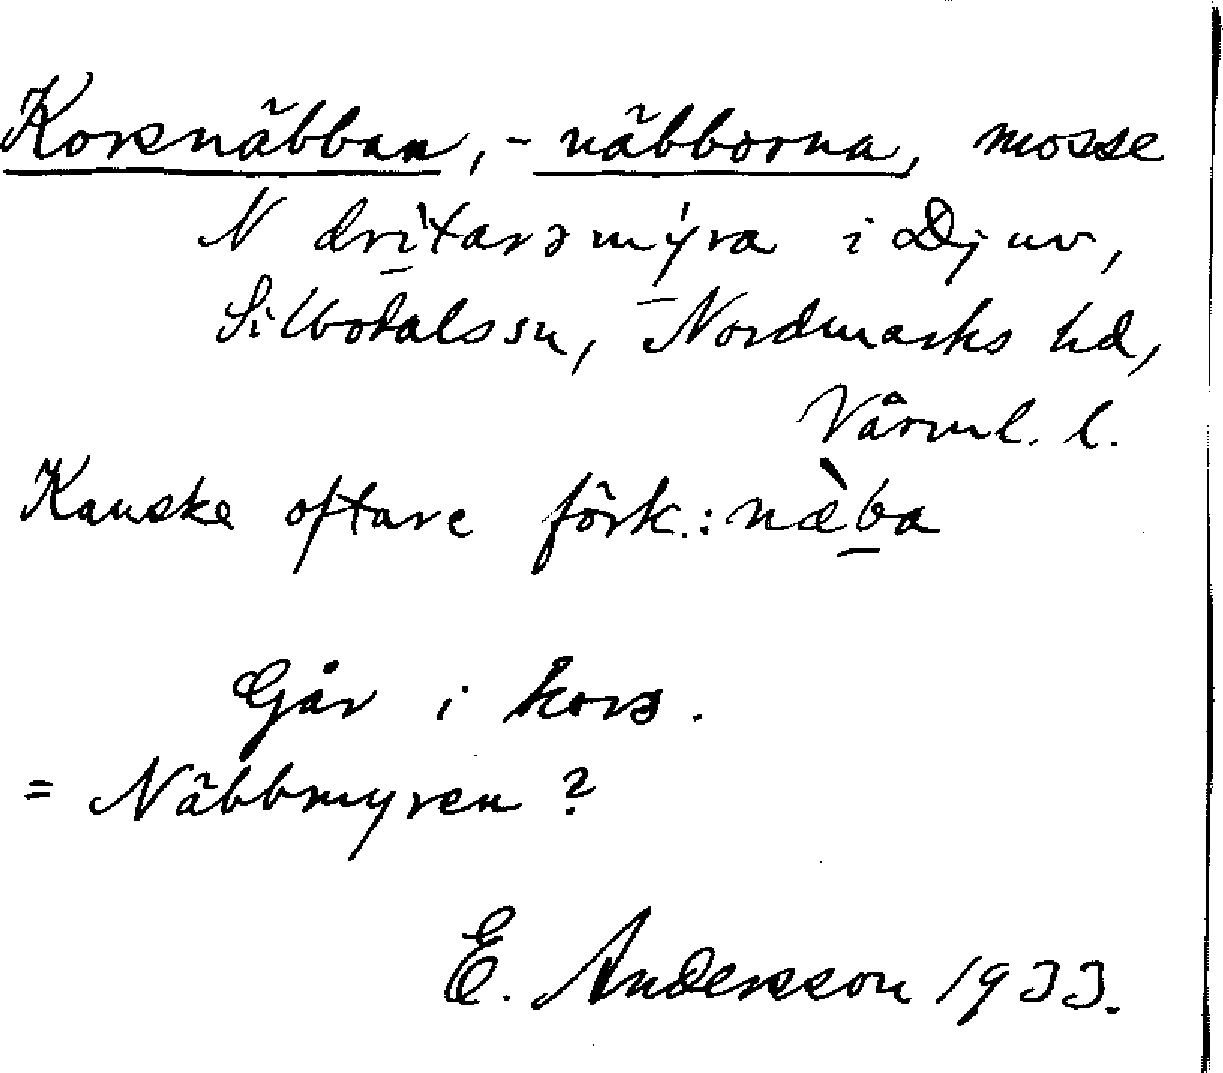 Korsnäbban, -näbborna, mosse
N drìtarəmýra i Djuv,
Silbodalssn, Nordmarks hd,
Värml. l.
Kanske oftare förk.: næ̀ba
Går i kors.
= Näbbmyren ?
E. Andersson 1933.